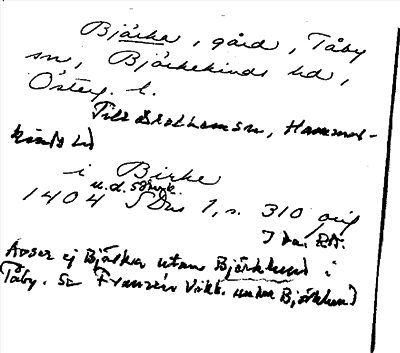 Bjärka, gård, Tåby
sn, Björkekinds hd,
Österg. l.
Hammar-
kinds hd
i Birke
u.d. Skänk.
1404 SDns 1, s. 310 orig
RA.
Avser ej Bjärka utan Björklund i
Tåby. Se Franzén Vikb. under Björklund